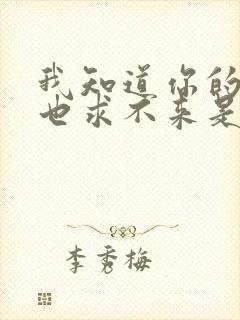 我知道你的
也求不来是
李秀梅